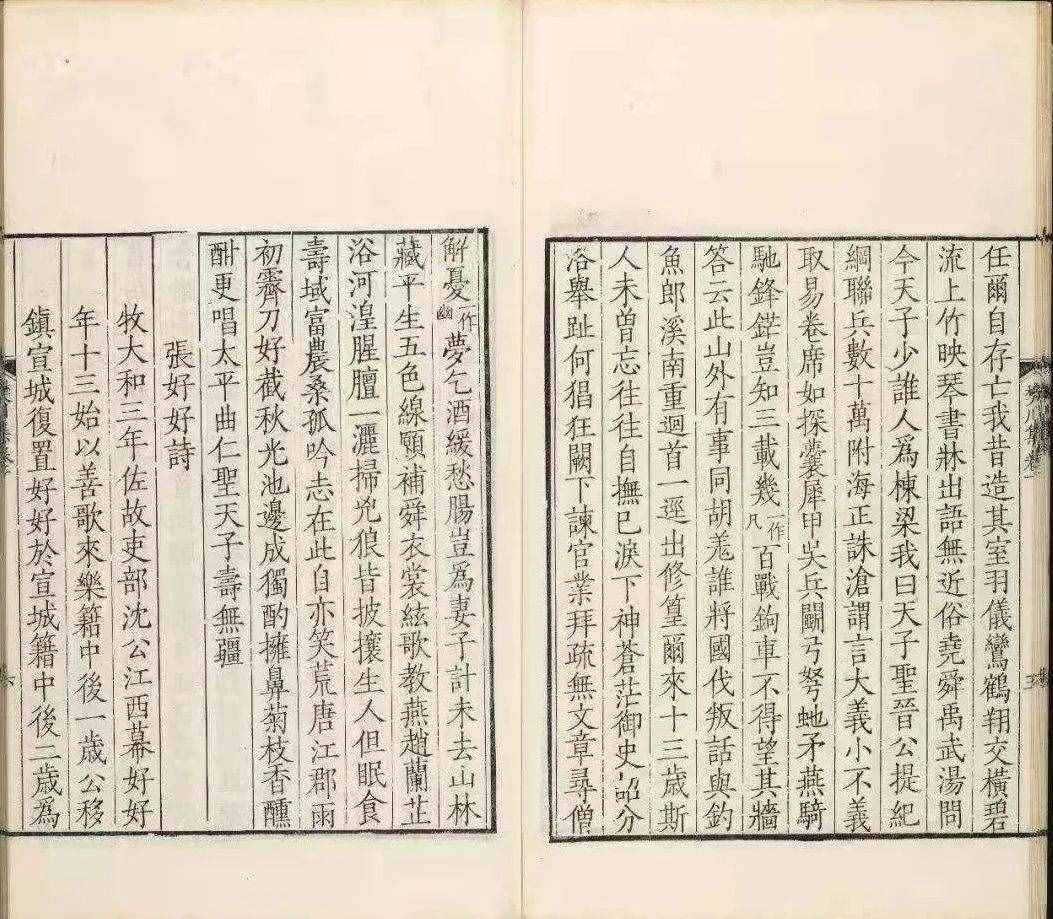 任爾自存亡我昔造其室羽儀鸞鶴翔交橫碧
流上竹映琴書牀出語無近俗堯舜禹武湯問
今天子少誰人爲棟梁我曰天子聖晉公提紀
綱聯兵數十萬附海正誅滄謂言大義小不義
取易卷席如探囊犀甲吳兵鬭弓弩虵矛燕騎
馳鋒鋩豈知三載幾一作凡百戰鉤車不得望其牆
答云此山外有事同胡羗誰將國伐叛話與釣
魚郎溪南重迴首一逕出修篁爾來十三歲斯
人未曾忘往往自撫已淚下神蒼茫御史詔分
洛舉趾何猖狂闕下諫官業拜疏無文章尋僧
解憂一作幽夢乞酒緩愁腸豈爲妻子計未去山林
藏平生五色線願補舜衣裳絃歌教燕趙蘭芷
浴河湟腥膻一灑掃兇狼皆披攘生人但眠食
壽域富農桑孤吟志在此自亦笑荒唐江郡雨
初霽刀好截秋光池邊成獨酌擁鼻菊枝香醺
酣更唱太平曲仁聖天子壽無疆
張好好詩
牧大和三年佐故吏部沈公江西幕好好
年十三始以善歌來樂籍中後一歲公移
鎮宣城復置好好於宣城籍中後二歲爲